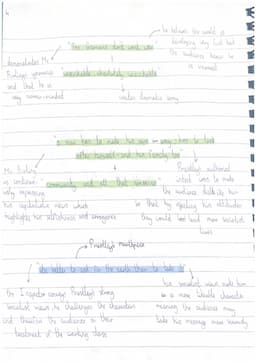 he believes the world is
developing very fast but
the audience knows he
is incorrect
"the Germans don't want war"
demonstrates Mr
Birling's ignorance
and that he is
very narrow-minded
"unsinkable, absolutely unsinkable"
creates dramatic irony
"a man has to make his own way - has to look
after himself - and his family too"
Mr Birling
is continuously
expressing
his capitalistic views which
highlights his selfishness and arrogance
"community and all that nonsense"
Priestley's
intent was to make
the audience dislike him
so that by rejecting his attitudes
they would lead more socialist
lives
Priestley's mouthpiece
"it's better to ask for the earth than to take it"
the Inspector conveys Priestley's strong
socialist views he challenges the characters
and the audience on their
treatment of the working class
his socialist views make him
be a more likeable character
meaning the audience may
take his message more